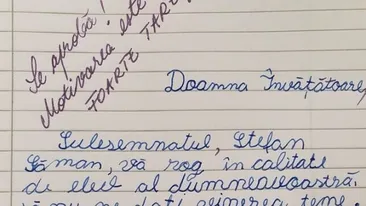 Se aprobă!
Motivarea este
FOARTE TARE
Doamna Învățătoare,
Subsemnatul, Ștefan
Săman, vă rog în calitate
de elev al dumneavoastră,
să nu ne dați